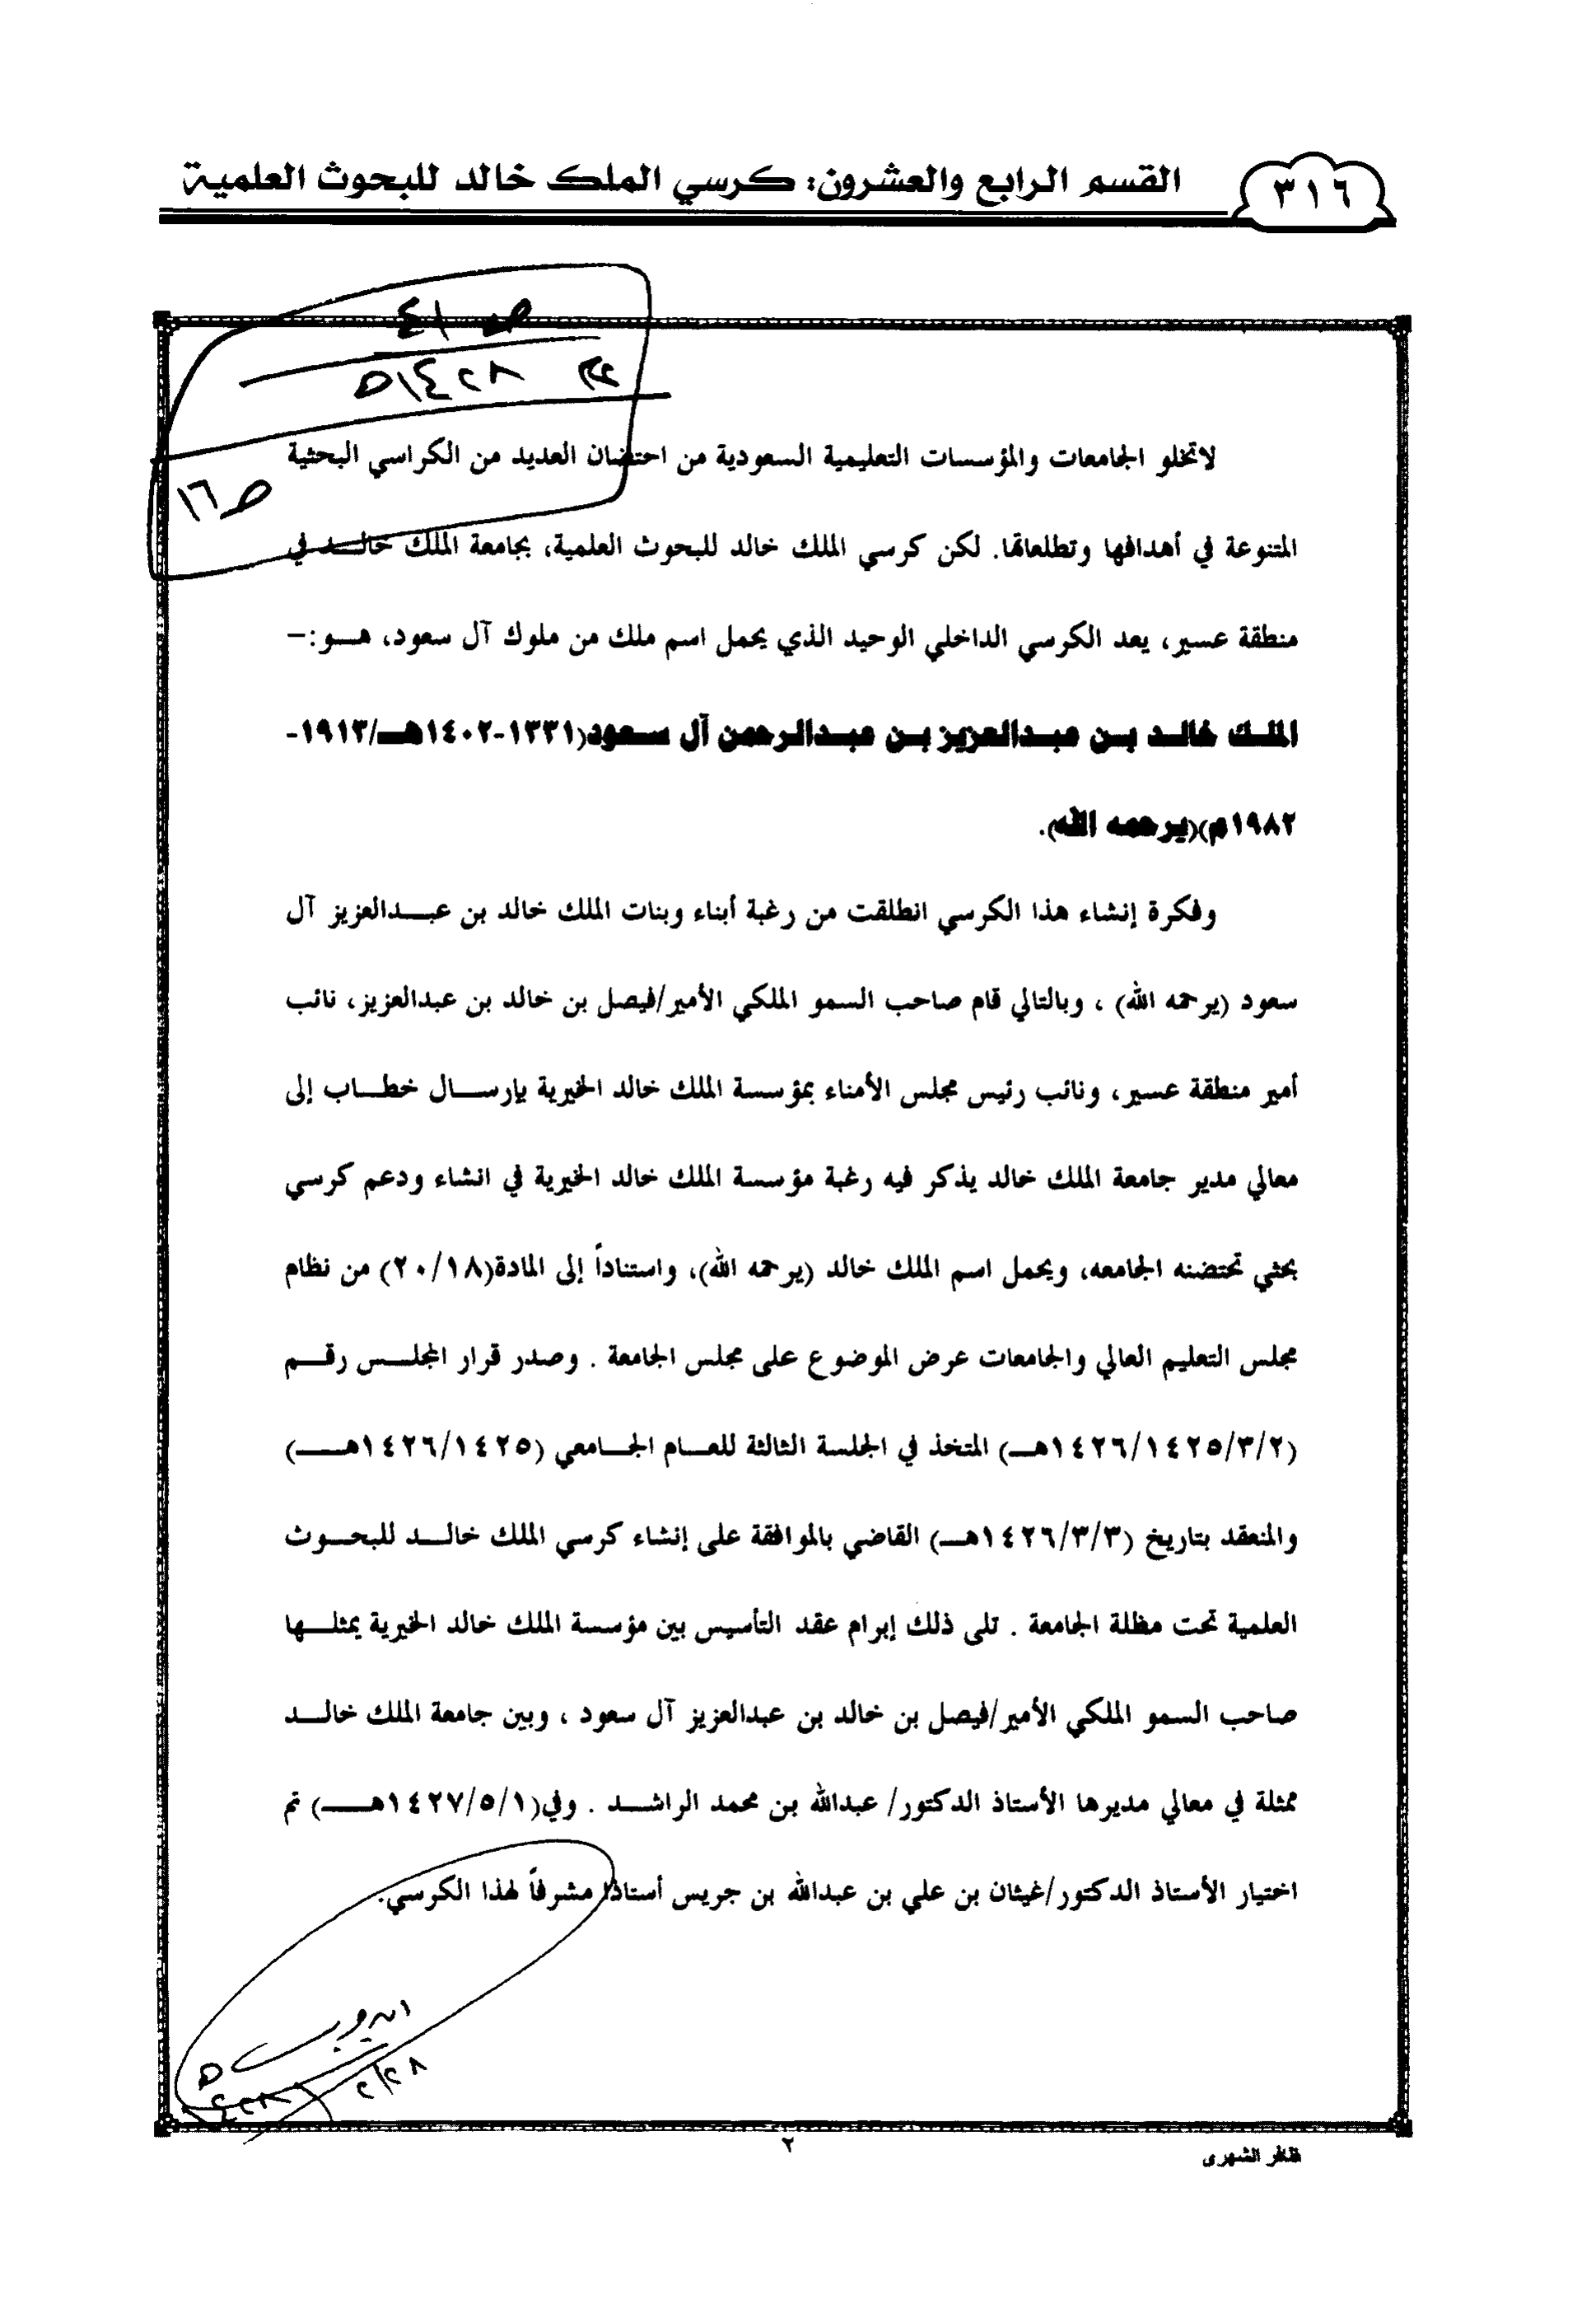 القسم الرابع والعشرون: كرسي الملك خالد للبحوث العلمية
٣١٦
ص ٤١
١٤٢٨هـ
ص ١٦
لاتخلو الجامعات والمؤسسات التعليمية السعودية من احتضان العديد من الكراسي البحثية
المتنوعة في أهدافها وتطلعاتها. لكن كرسي الملك خالد للبحوث العلمية، بجامعة الملك خالــد في
منطقة عسير، يعد الكرسي الداخلي الوحيد الذي يحمل اسم ملك من ملوك آل سعود، هــو:-
الملك خالد بن عبدالعزيز بن عبدالرحمن آل سعود(١٣٣١-١٤٠٢هـ/١٩١٣-
١٩٨٢م)(يرحمه الله).
وفكرة إنشاء هذا الكرسي انطلقت من رغبة أبناء وبنات الملك خالد بن عبــدالعزيز آل
سعود (يرحمه الله) ، وبالتالي قام صاحب السمو الملكي الأمير/فيصل بن خالد بن عبدالعزيز، نائب
أمير منطقة عسير، ونائب رئيس مجلس الأمناء بمؤسسة الملك خالد الخيرية بإرســال خطــاب إلى
معالي مدير جامعة الملك خالد يذكر فيه رغبة مؤسسة الملك خالد الخيرية في انشاء ودعم كرسي
بحثي تحتضنه الجامعه، ويحمل اسم الملك خالد (يرحمه الله)، واستناداً إلى المادة(٢٠/١٨) من نظام
مجلس التعليم العالي والجامعات عرض الموضوع على مجلس الجامعة . وصدر قرار المجلــس رقــم
(١٤٢٦/١٤٢٥/٣/٢هــ) المتخذ في الجلسة الثالثة للعــام الجــامعي (١٤٢٦/١٤٢٥هـــ)
والمنعقد بتاريخ (١٤٢٦/٣/٣هــ) القاضي بالموافقة على إنشاء كرسي الملك خالــد للبحــوث
العلمية تحت مظلة الجامعة . تلى ذلك إبرام عقد التأسيس بين مؤسسة الملك خالد الخيرية يمثلــها
صاحب السمو الملكي الأمير/فيصل بن خالد بن عبدالعزيز آل سعود ، وبين جامعة الملك خالــد
ممثلة في معالي مديرها الأستاذ الدكتور/ عبدالله بن محمد الراشــد . وفي(١٤٢٧/٥/١هـــ) تم
اختيار الأستاذ الدكتور/غيثان بن علي بن عبدالله بن جريس أستاذا مشرفاً لهذا الكرسي.
٢
ظافر الشهري